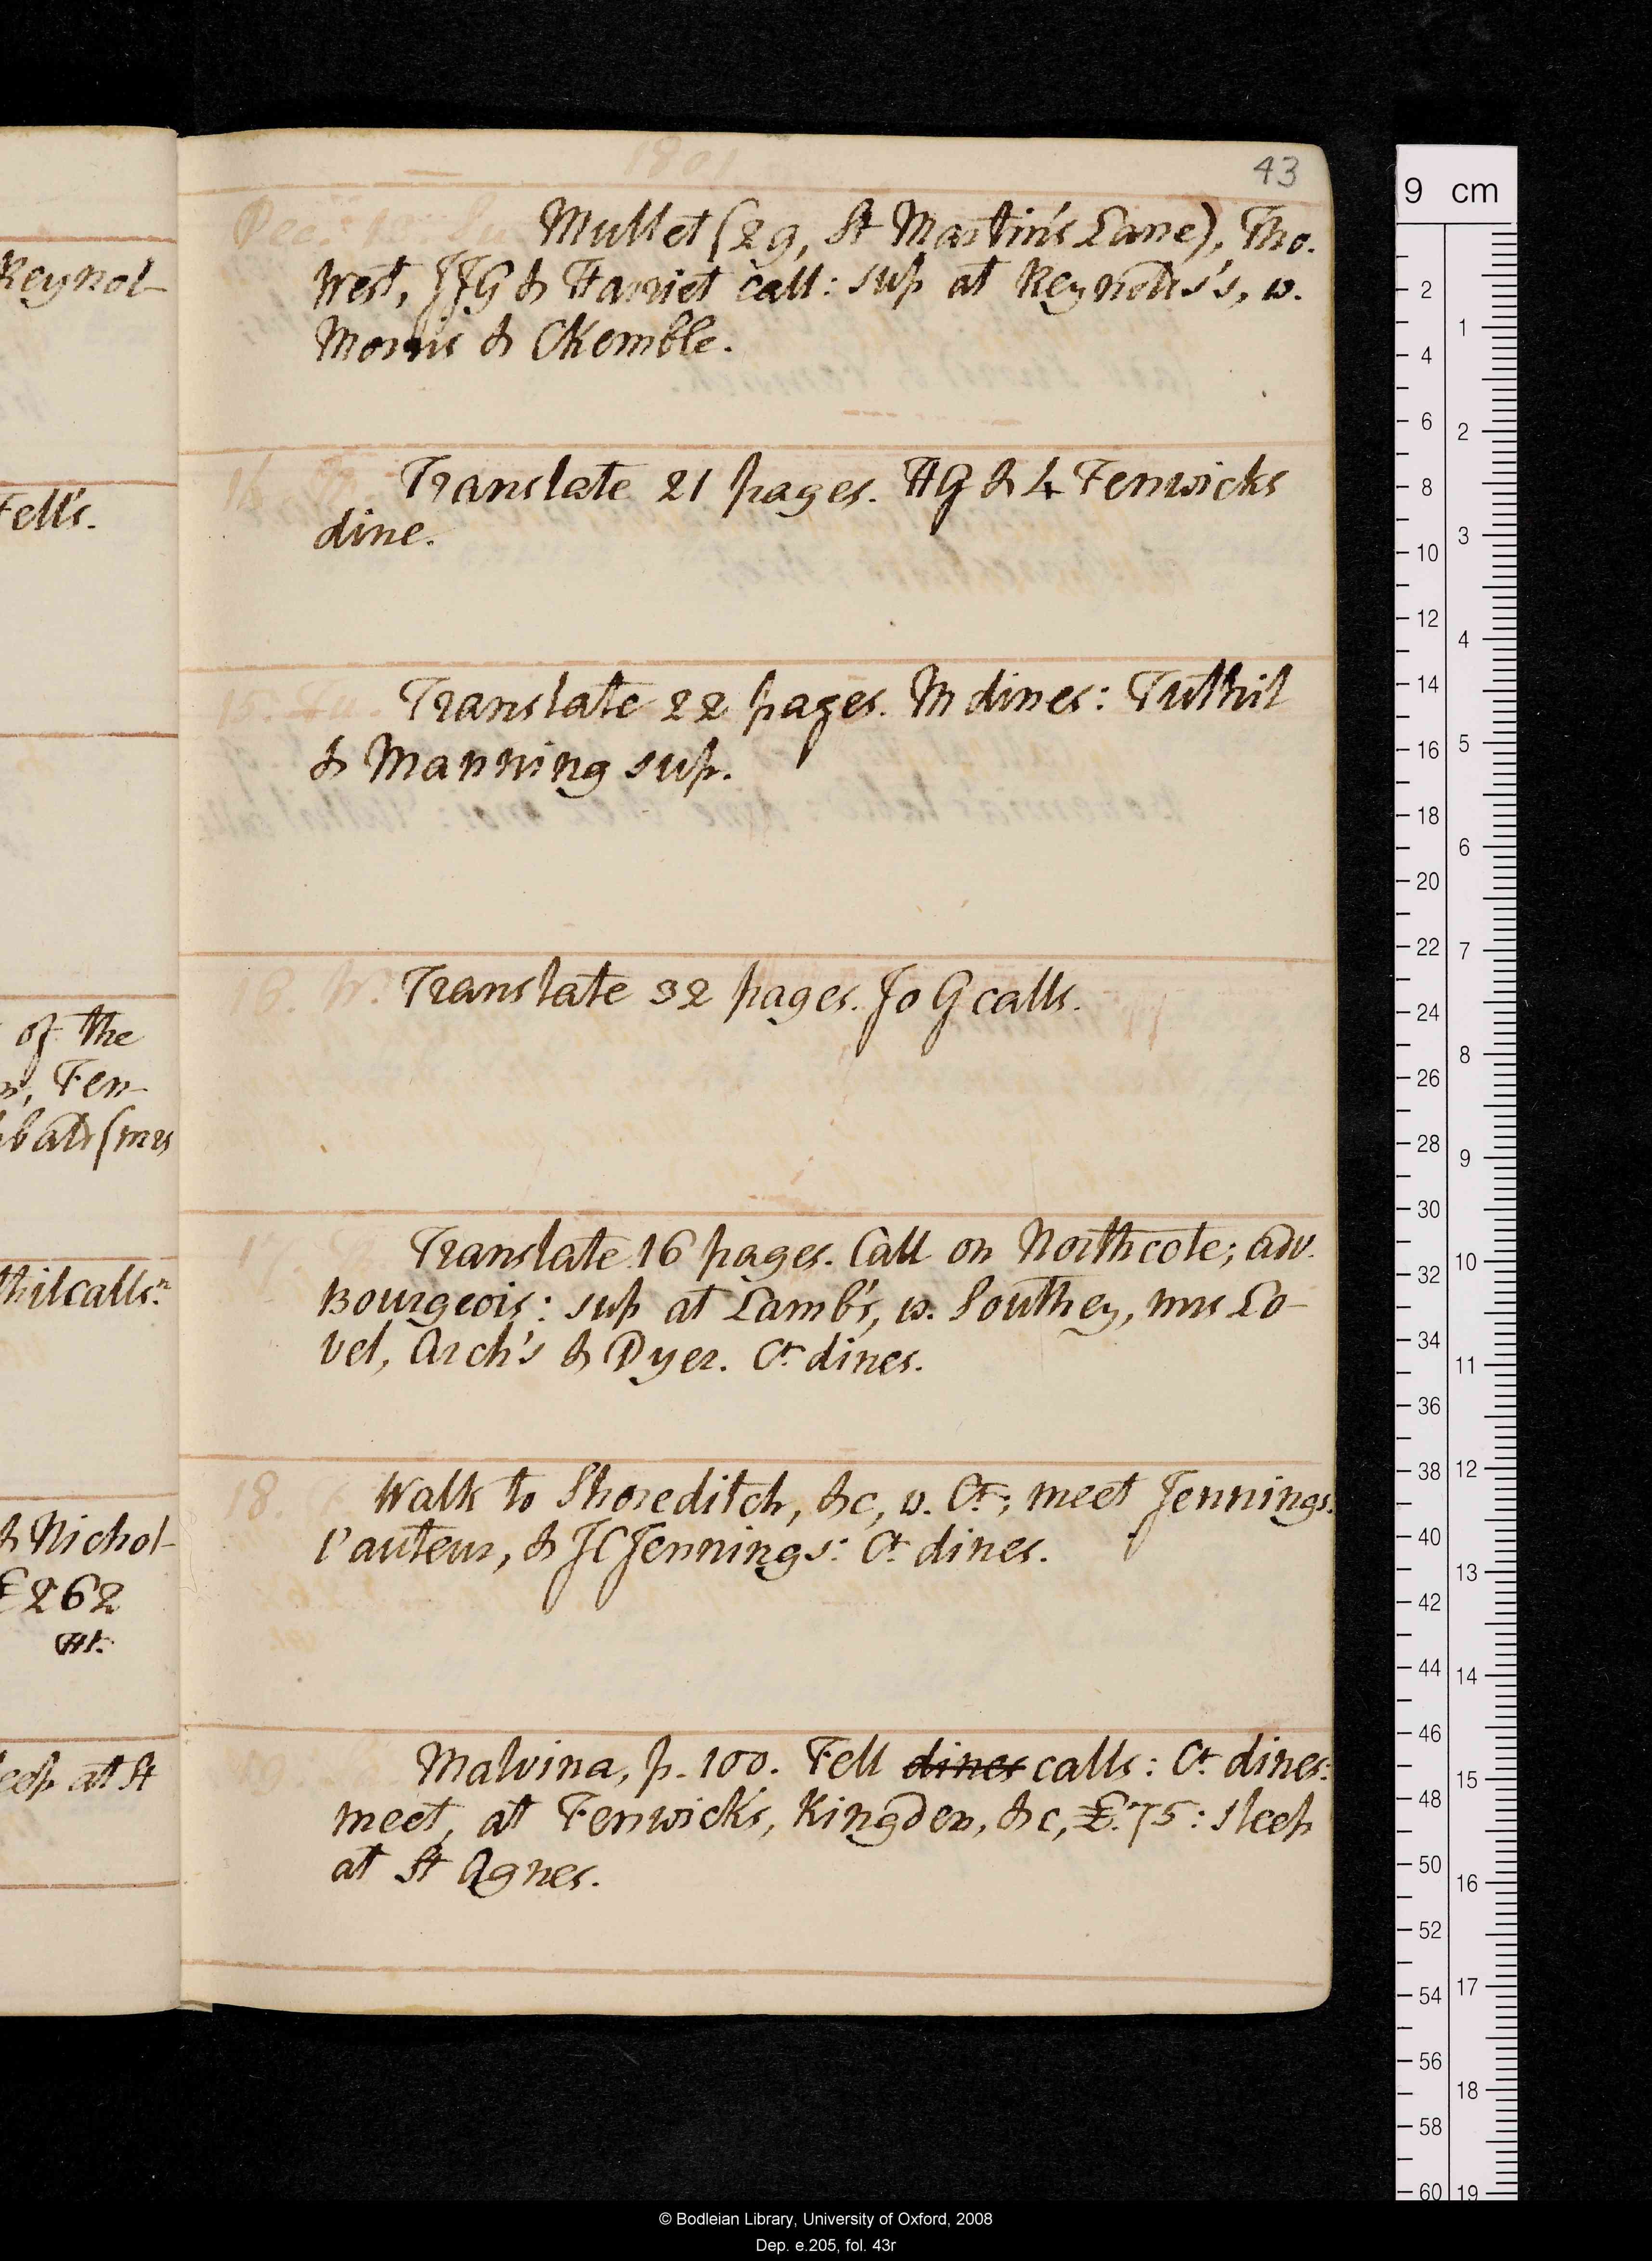 Reynol-
Fell's.
of the
Fen-
(mrs
calls.
& Nichol-
£262
at St
1801
43
Dec. 13. Su. Mullet (29, St Martin's Lane), Tho.
West, JJG & Harriet call: sup at Reynolds's, w.
Morris & CKemble.
14. Translate 21 pages. HG & 4 Fenwicks
dine.
15. Tu. Translate 22 pages. M dines: Tuthil
& Manning sup.
16. W. Translate 32 pages. Jo G calls.
17. Translate 16 pages. Call on Northcote; adv.
Bourgeois: sup at Lamb's, w. Southey, mrs Lo-
vel, Arch's & Dyer. Ct dines.
18. Walk to Shoreditch, &c, w. Ct; meet Jennings
l'auteur, & JCJennings: Ct dines.
Malvina, p. 100. Fell dines calls: Ct dines:
meet, at Fenwick's, Kingdon, &c, £.75: sleep
at St Agnes.
9 cm
2
4
6
8
10
12
14
16
18
20
22
24
26
28
30
32
34
36
38
40
42
44
46
48
50
52
54
56
58
60
1
2
3
4
5
6
7
8
9
10
11
12
13
14
15
16
17
18
19
© Bodleian Library, University of Oxford, 2008
Dep. e.205, fol. 43r